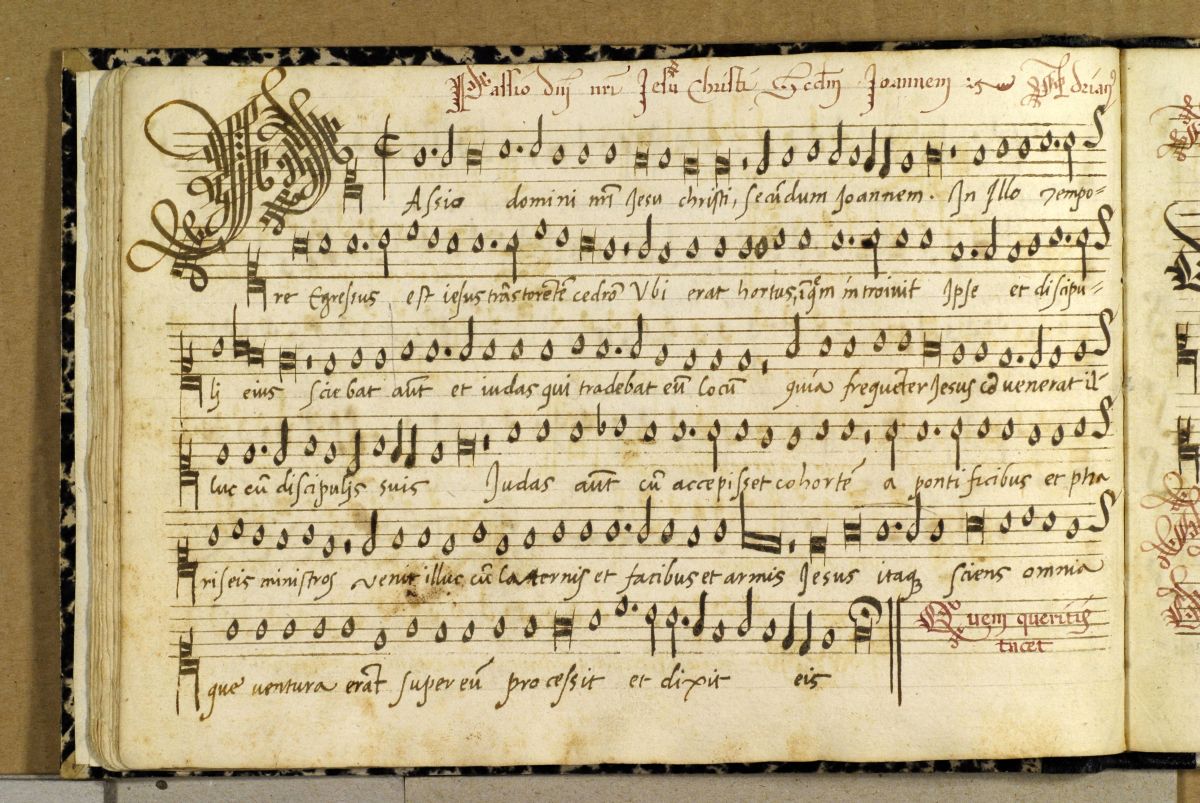 Passio dnj nrj Jesu Christi Secdm Joannem Adrianꝰ
PAssio domini nrj Jesu christi, secũdum Joannem. In Illo Tempo-
re Egressus est iesus trãs torentẽ cedrõ Vbi erat hortus, in quem introiuit Ipse et discipu-
lj eius sciebat aũt et iudas qui tradebat eũ locũ quia frequẽter Jesus cõuenerat il-
luc cũ discipulis suis Judas aũt cũ accepisset cohortẽ a pontificibus et pha
riseis ministros Venit illuc cũ lanternis et facibus et armis Jesus itaqꝫ sciens omnia
que ventura erãt super eũ processit et dixit eis
Quem queritis
tacet